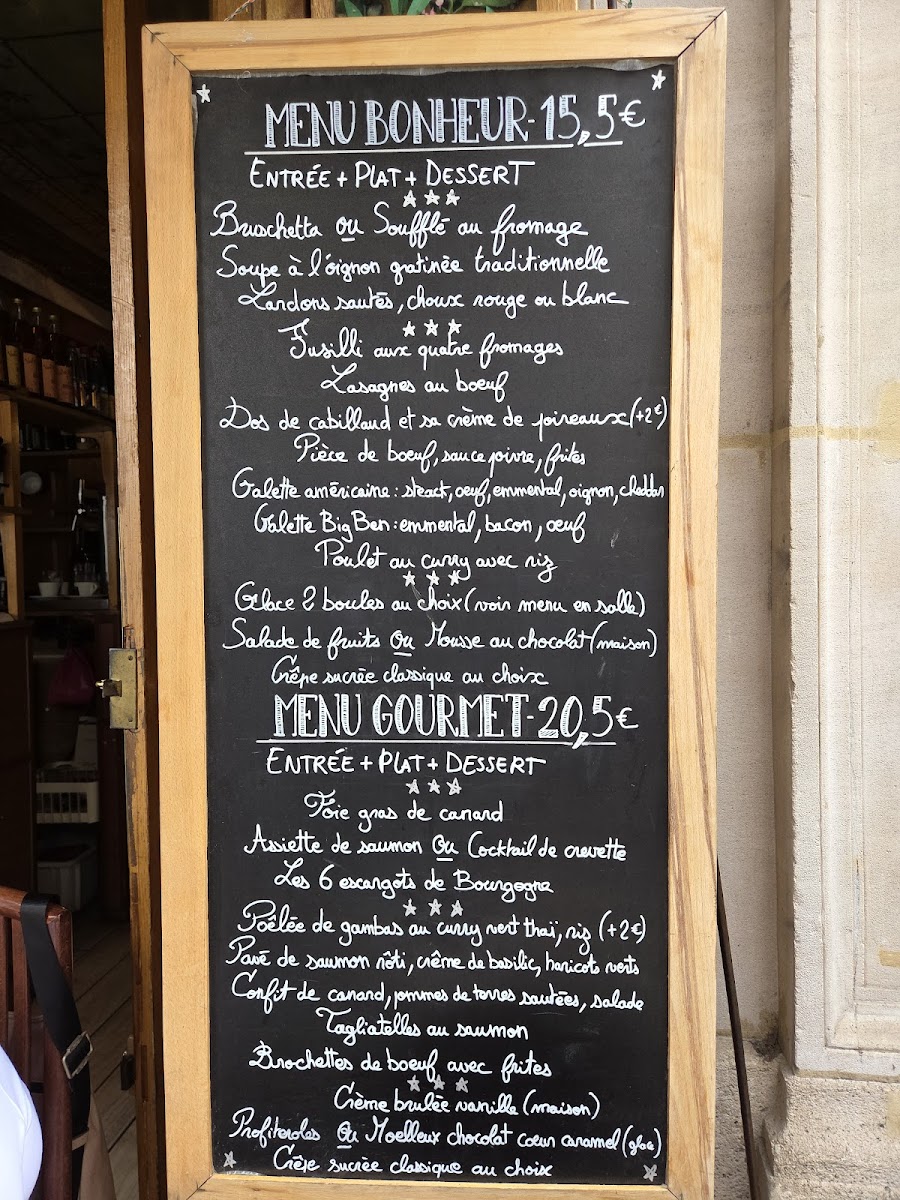 MENU BONHEUR-15,5€
ENTRÉE + PLAT + DESSERT
Bruschetta ou Soufflé au fromage
Soupe à l'oignon gratinée traditionnelle
Lardons sautés, choux rouge ou blanc
Fusilli aux quatre fromages
Lasagnes au boeuf
Dos de cabillaud et sa crème de poireaux (+2€)
Pièce de boeuf, sauce poivre, frites
Galette américaine : steack, oeuf, emmental, oignon, cheddar
Galette Big Ben : emmental, bacon, oeuf
Poulet au curry avec riz
Glace 2 boules au choix (voir menu en salle)
Salade de fruits ou Mousse au chocolat (maison)
Crêpe sucrée classique au choix
MENU GOURMET-20,5€
ENTRÉE + PLAT + DESSERT
Foie gras de canard
Assiette de saumon ou Cocktail de crevette
Les 6 escargots de Bourgogne
Poêlée de gambas au curry vert thaï, riz (+2€)
Pavé de saumon rôti, crême de basilic, haricots verts
Confit de canard, pommes de terres sautées, salade
Tagliatelles au saumon
Brochettes de boeuf avec frites
Crème brulée vanille (maison)
Profiteroles ou Moelleux chocolat coeur caramel (glace)
Crêpe sucrée classique au choix